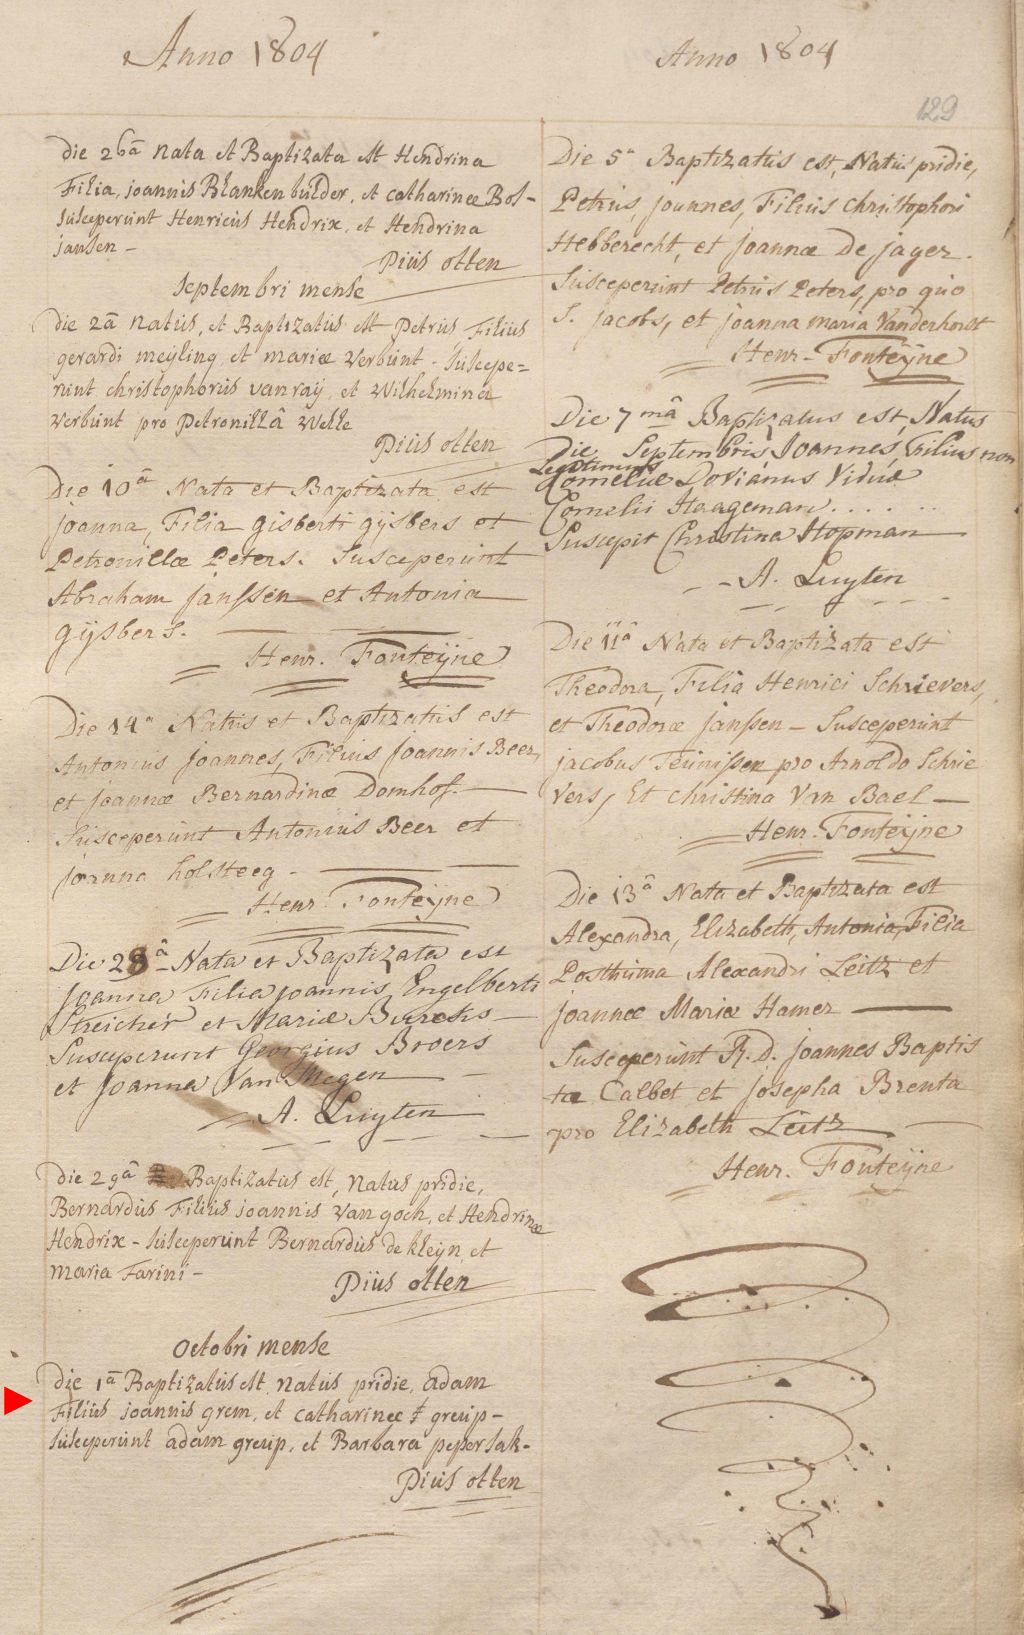 Anno 1804
die 26â nata et Baptizata est Hendrina
Filia, joannis Blankenbulder, et catharinæ Bos-
Susceperunt Henricus Hendrix, et Hendrina
jansen -
Piüs otten
Septembri mense
die 2â natus, et Baptizatus est Petrus Filius
gerardi meyling et mariæ Verbunt - Suscepe=
runt christophorus van raÿ, et Wilhelmina
Verbunt pro Petronillâ Welle
Piüs otten
Die 10â Nata et Baptizata est
joanna, Filia gisberti gÿsbers et
Petronillæ Peters. Susceperunt
Abraham janssen et Antonia
gÿsbers.
Henr. Fonteÿne
Die 14a Natus et Baptizatus est
Antonius joannes, Filius joannis Beer,
et joannæ Bernardinæ Domhof.
Susceperunt Antonius Beer et
joanna holsteeg -
Henr. Fonteÿne
Die 28â Nata et Baptizata est
Joanna Filia joannis Engelberti
Streicher et Mariæ
Susceperunt Georgius Broers
et Joanna Van Megen
A. Luyten
die 29â Baptizatus est, natus pridie,
Bernardus Filius joannis van goch, et Hendrinæ
Hendrix - susceperunt Bernardus de kleÿn et
maria Farini -
Piüs otten
Octobri mense
die 1â Baptizatus est, natus pridie, adam
Filius joannis grem, et catharinæ greup -
susceperunt adam greup, et Barbara pepersak -
Piüs otten
Anno 1804
129
Die 5a Baptizatus est, Natus pridie,
Petrus, joannes, Filius christophori
Hebberecht, et joannæ De jager.
Susceperunt Petrus Peters, pro quo
S. jacobs, et joanna maria Vanderhorst
Henr - Fonteÿne
Die 7mâ Baptizatus est, Natus
Die Septembris Joannes, Filius non
Legitimus
Corneliæ Dovianus Viduæ
Cornelii Haageman . . . . . .
Suscepit Christina Hopman
- A. Luyten
Die 11â Nata et Baptizata est
Theodora, Filia Henrici Schrievers,
et Theodoræ janssen - Susceperunt
jacobus Teunissen pro Arnoldo Schrie
vers, Et christina Van Bael -
Henr. Fonteÿne
Die 13â Nata et Baptizata est
Alexandra, Elizabeth, Antonia, Filia
Posthuma Alexandri Leitz et
joannæ Mariæ Hamer
Susceperunt R. D. joannes Baptis
ta Calbet et josepha Brenta
pro Elizabeth Leitz
Henr. Fonteÿne